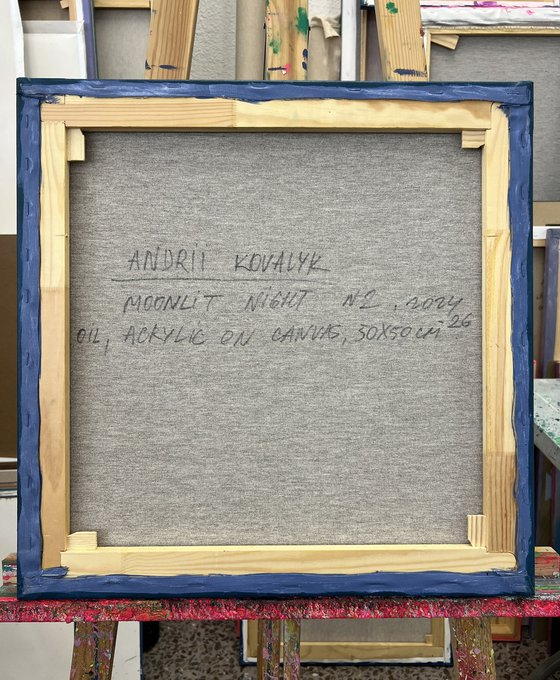 ANDRII KOVALYK
MOONLIT NIGHT N2, 2024
26
OIL, ACRYLIC ON CANVAS, 50X50 CM